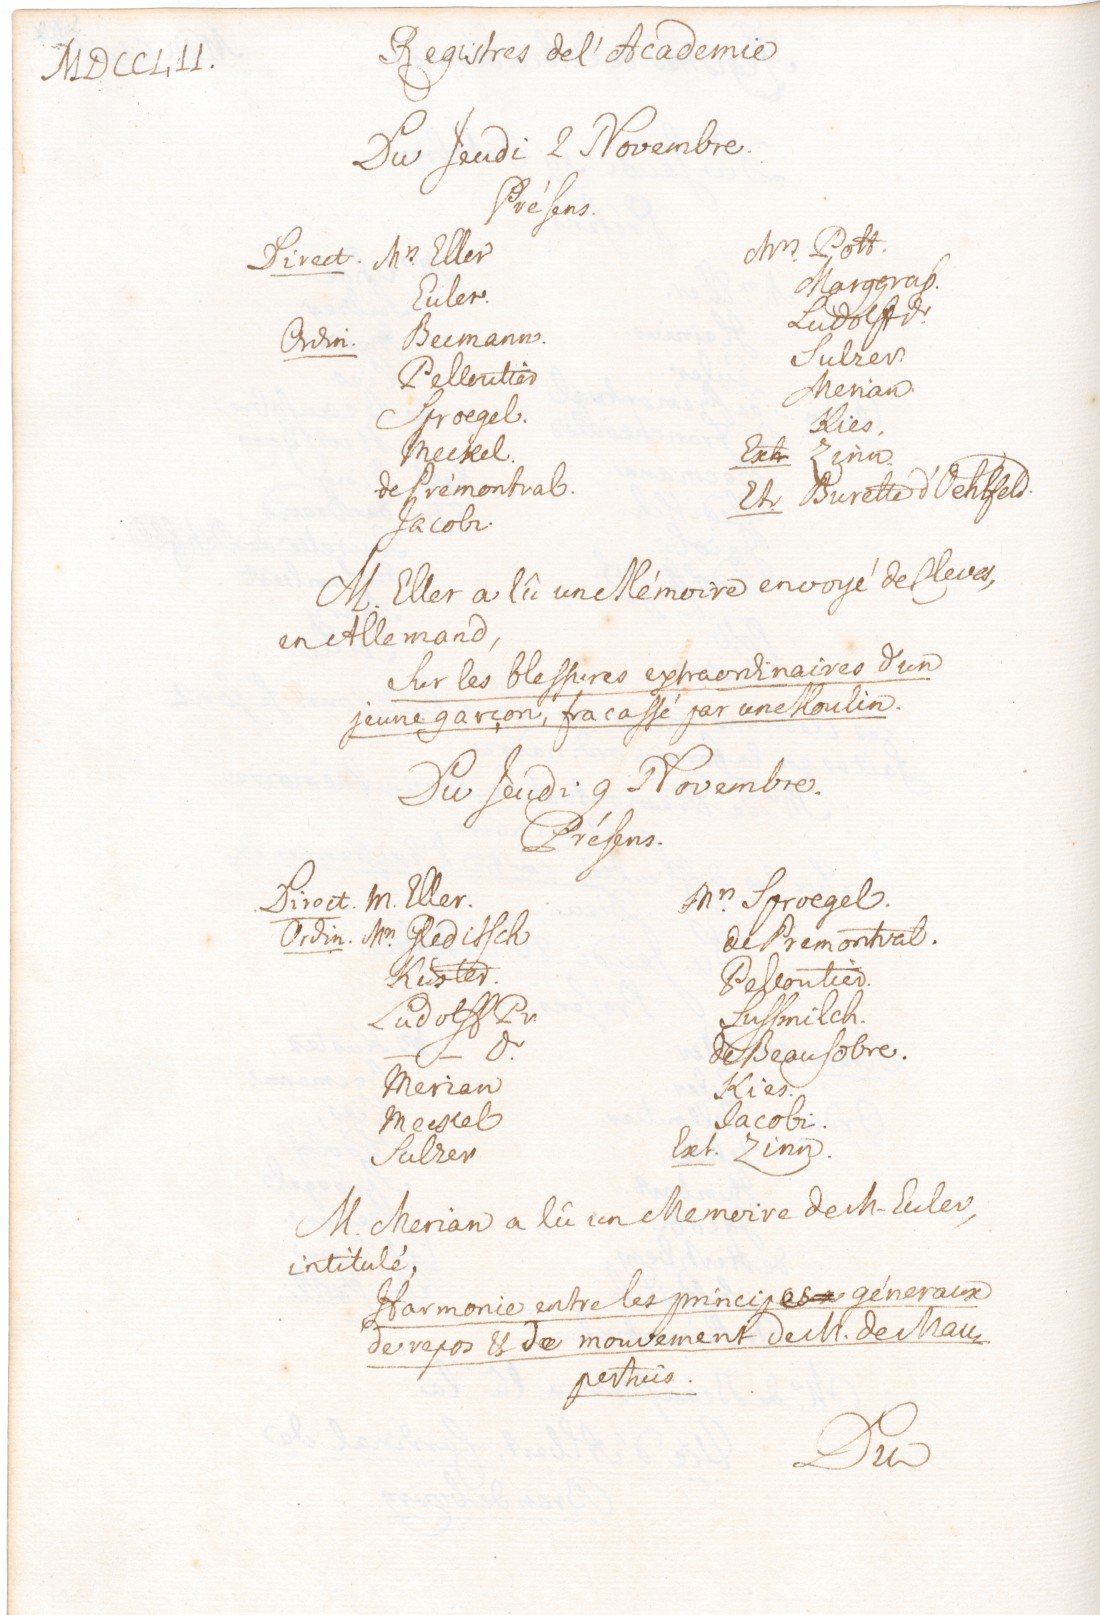 MDCCLII.
Registres de l'Academie
Du Jeudi 2 Novembre.
Présens.
Direct. Mrs. Eller
Euler.
Ordin. Becmann.
Pelloutier
Sproegel.
Meckel.
de Prémontval.
Jacobi.
Mrs. Pott.
Marggraf.
Ludolff dr.
Sulzer
Merian
Kies.
Extr Zinn.
Etr. Burette d'Oehlfeld.
M. Eller a lû un Mémoire envoyé de Cleves,
en Allemand,
Sur les blessures extraordinaires d'un
jeune garçon, fracassé par un Moulin.
Du Jeudi 9 Novembre.
Présens.
Direct. M. Eller.
Ordin. Mrs. Gleditsch
Kuster.
Ludolff Pr
— — dr
Merian
Meckel
Sulzer
Mrs. Sproegel.
de Premontval.
Pelloutier.
Sussmilch.
de Beausobre.
Kies.
Jacobi.
Ext. Zinn.
M. Merian a lû un Memoire de M. Euler,
intitulé,
Harmonie entre les principes géneraux
de repos & de mouvement de M. de Mau-
pertuis.
Du